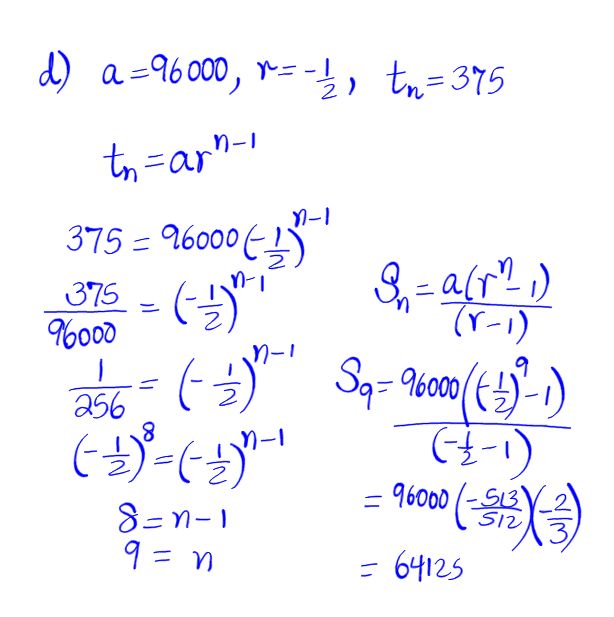 d) a = 96000, r = -1/2, tₙ = 375
tₙ = arⁿ⁻¹
375 = 96000(-1/2)ⁿ⁻¹
375/96000 = (-1/2)ⁿ⁻¹
1/256 = (-1/2)ⁿ⁻¹
(-1/2)⁸ = (-1/2)ⁿ⁻¹
8 = n-1
9 = n
Sₙ = a(rⁿ-1)/(r-1)
S₉ = 96000((-1/2)⁹-1)/(-1/2-1)
= 96000(-513/512)(-2/3)
= 64125